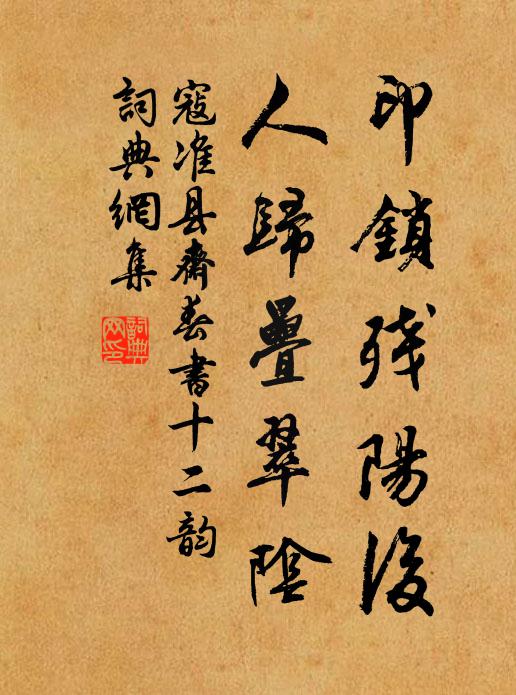 印鎖残陽後
人歸疊翠陰
寇准县齋春書十二韵
詞典網集
詞典网印